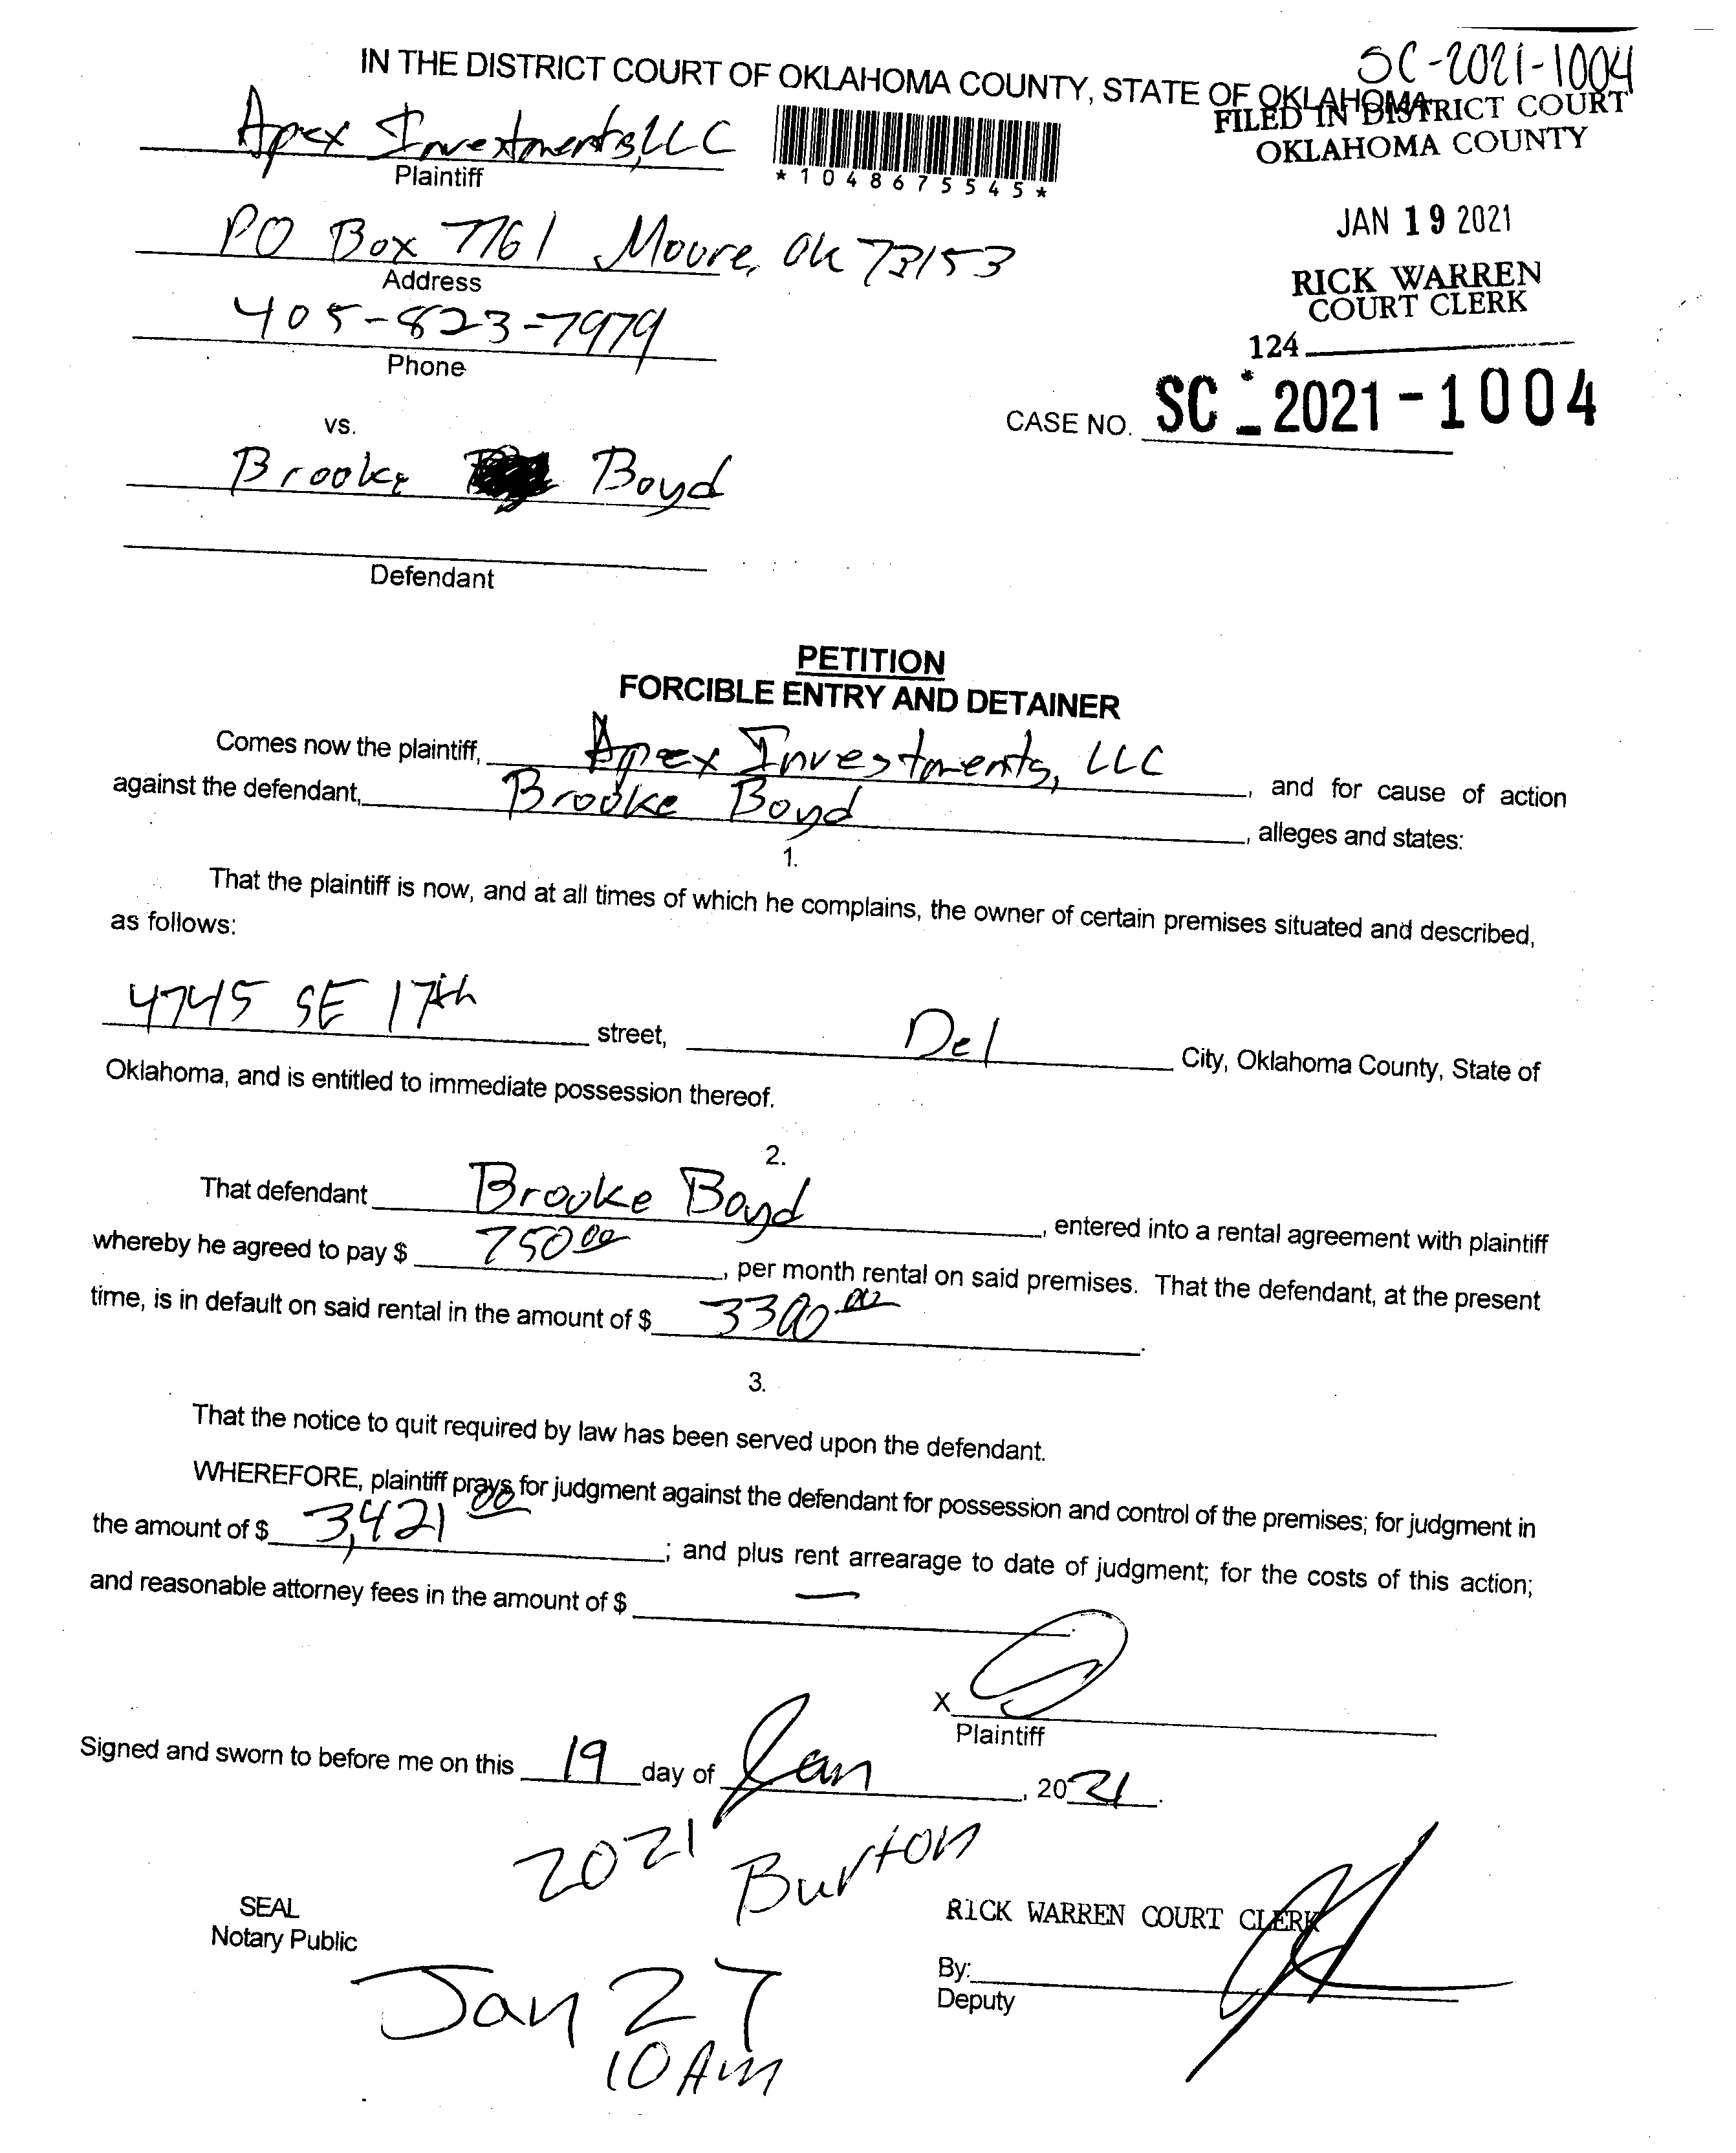 SC-2021-1004
IN THE DISTRICT COURT OF OKLAHOMA COUNTY, STATE OF OKLAHOMA
FILED IN DISTRICT COURT
OKLAHOMA COUNTY
Apex Investments, LLC
Plaintiff
*1048675545*
JAN 19 2021
PO Box 7761 Moore, Ok 73153
Address
RICK WARREN
COURT CLERK
405-823-7979
Phone
124
CASE NO. SC-2021-1004
vs.
Brooke Boyd
Defendant
PETITION
FORCIBLE ENTRY AND DETAINER
Comes now the plaintiff, Apex Investments, LLC, and for cause of action
against the defendant, Brooke Boyd, alleges and states:
1.
That the plaintiff is now, and at all times of which he complains, the owner of certain premises situated and described,
as follows:
4745 SE 17th street, Del City, Oklahoma County, State of
Oklahoma, and is entitled to immediate possession thereof.
2.
That defendant Brooke Boyd, entered into a rental agreement with plaintiff
whereby he agreed to pay $ 750 00, per month rental on said premises. That the defendant, at the present
time, is in default on said rental in the amount of $ 3300 00.
3.
That the notice to quit required by law has been served upon the defendant.
WHEREFORE, plaintiff prays for judgment against the defendant for possession and control of the premises; for judgment in
the amount of $ 3,421 00; and plus rent arrearage to date of judgment; for the costs of this action;
and reasonable attorney fees in the amount of $ —.
X
Plaintiff
Signed and sworn to before me on this 19 day of Jan, 2021.
2021 Burton
SEAL
Notary Public
RICK WARREN COURT CLERK
By:
Deputy
Jan 27
10 Am